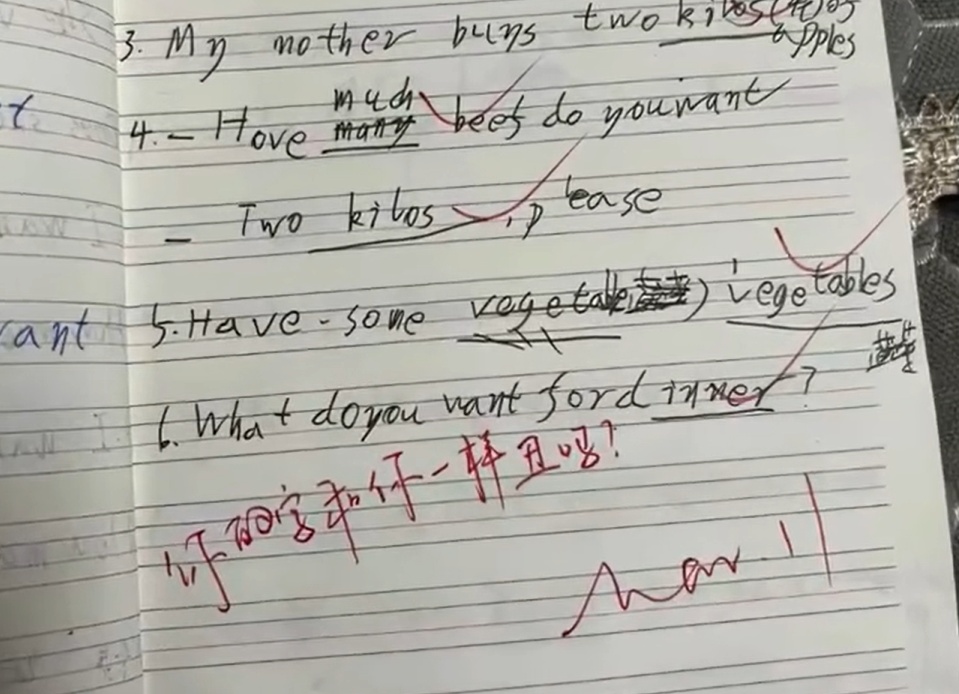 3. My mother buys two kilos
apples
much
4. - Hove many beef do you want
- Two kilos , please
ant 5. Have some vegetable ) vegetables
6. What do you want for dinner ?
你的字和你一样丑吗?
Mar. 11